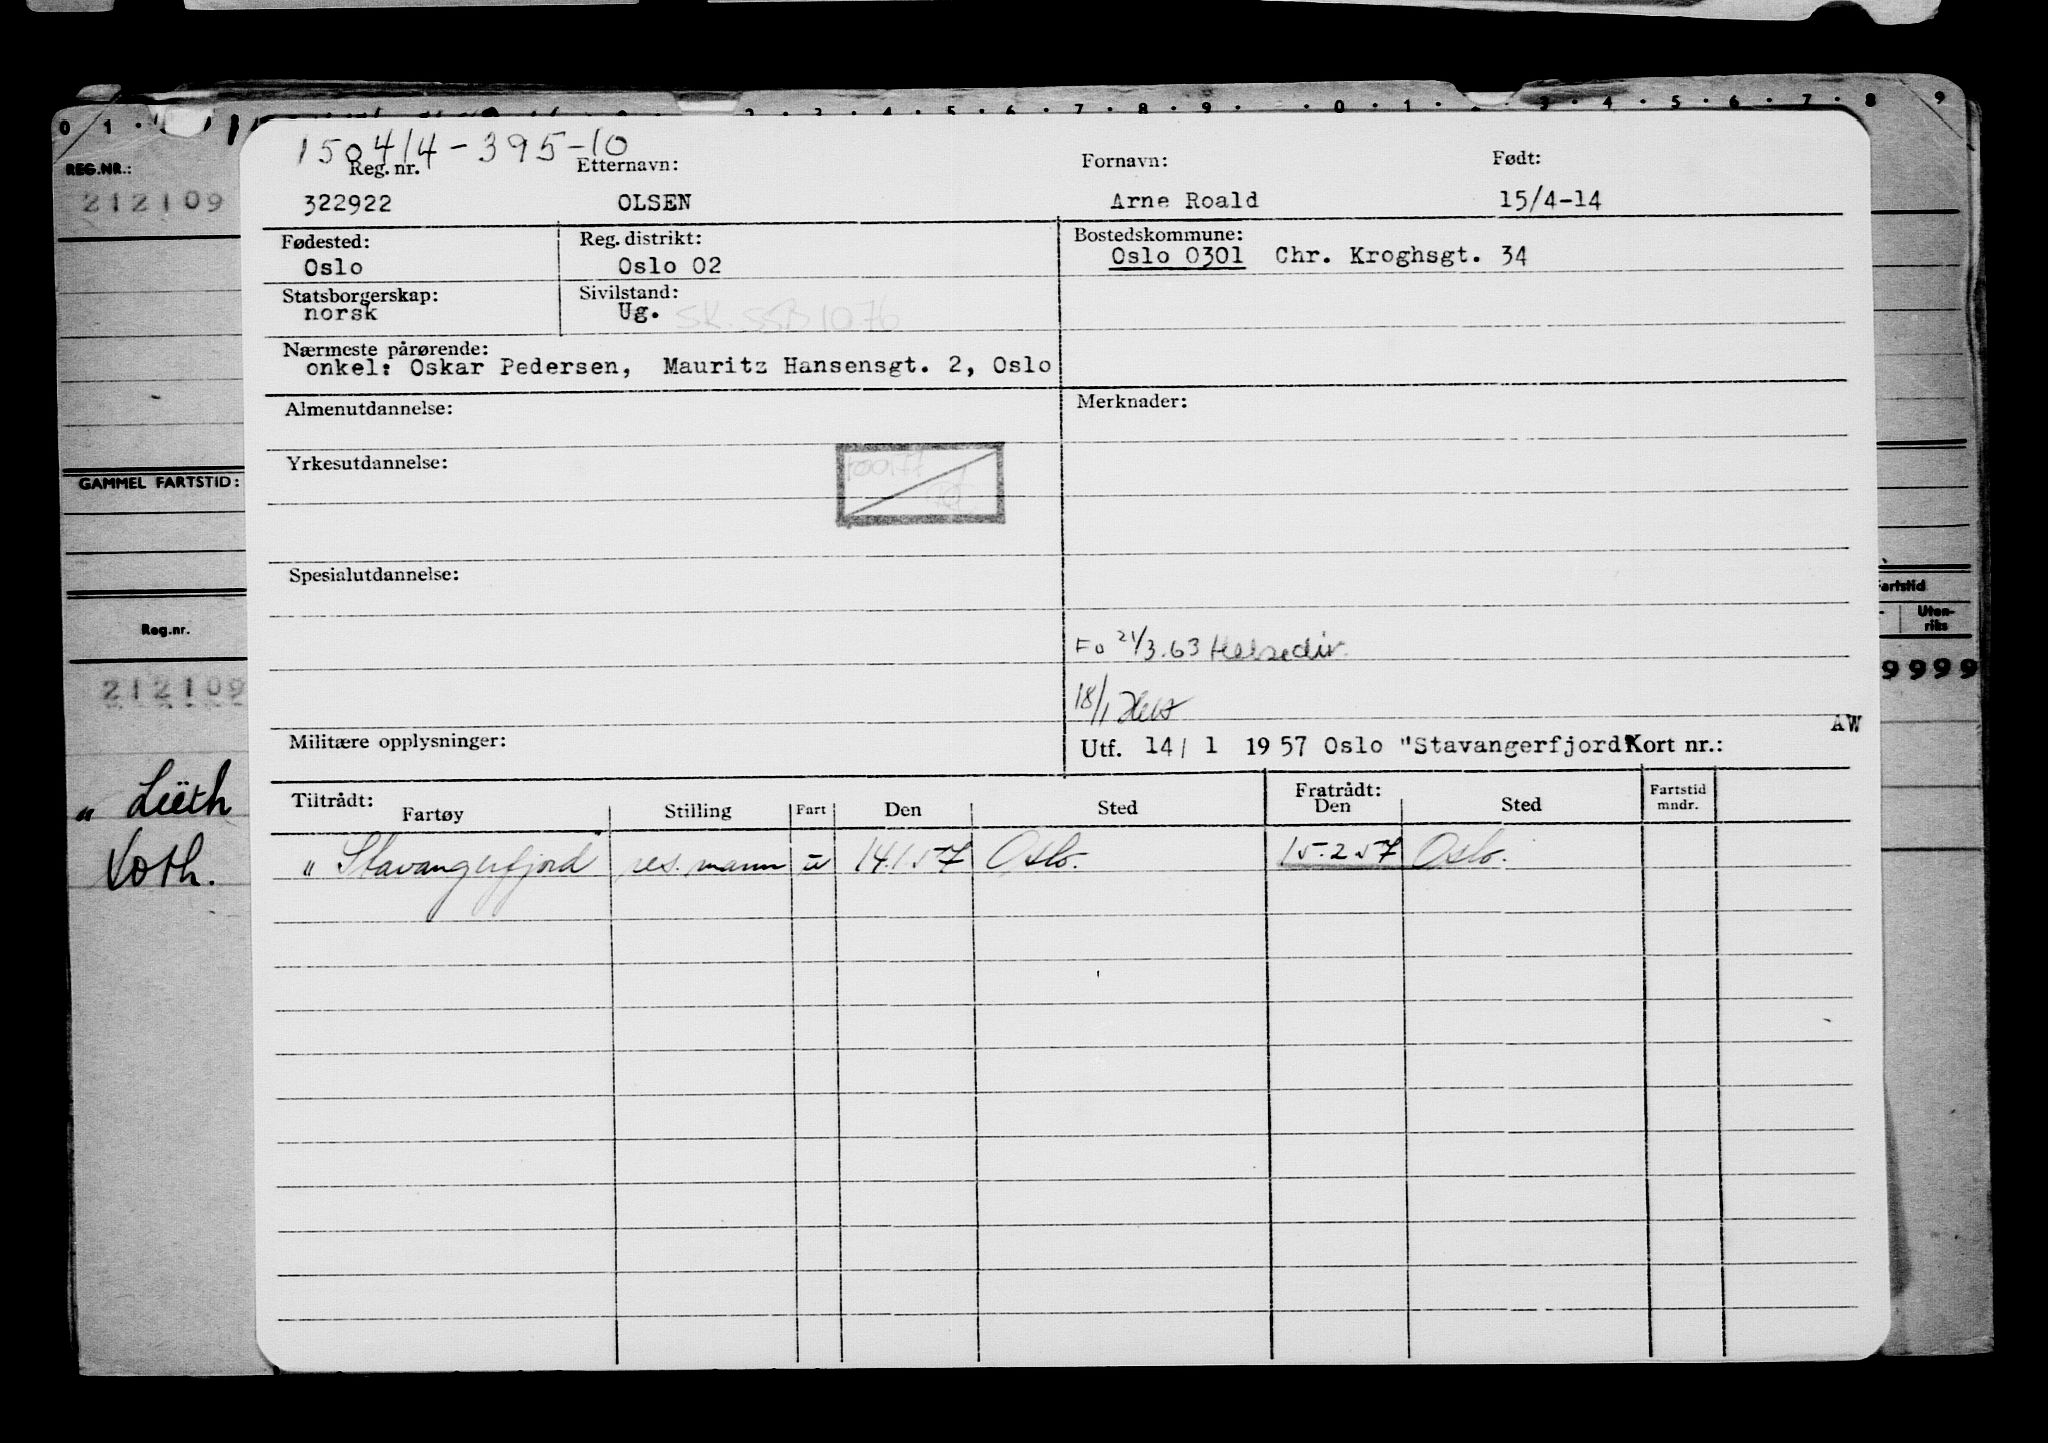 0 1 . 2 . 3 . 4 . 5 . 6 . 7 . 8 . 9 . . 0 . 1 . 2 . 3 . 4 . 5 . 6 . 7 . 8 9
150414-395-10
REG.NR.:
212109
Reg. nr. Etternavn: Fornavn: Født:
322922 OLSEN Arne Roald 15/4-14
Fødested: Reg. distrikt: Bostedskommune:
Oslo Oslo 02 Oslo 0301 Chr. Kroghsgt. 34
Statsborgerskap: Sivilstand:
norsk Ug. SK. SSB 10.76
Nærmeste pårørende:
onkel: Oskar Pedersen, Mauritz Hansensgt. 2, Oslo
Almenutdannelse: Merknader:
Yrkesutdannelse:
GAMMEL FARTSTID:
Spesialutdannelse:
Fartstid
Uten-
riks
Reg.nr.
Fo 21/3.63 Helsedir.
9999
212109
18/1
AW
Militære opplysninger: Utf. 14/ 1 1957 Oslo "Stavangerfjord" Kort nr.:
" Lüth
Voth.
Tiltrådt: Fratrådt: Fartstid
Fartøy Stilling Fart Den Sted Den Sted mndr.
" Stavangerfjord res. mann u 14.1.57 Oslo. 15.2.57 Oslo.